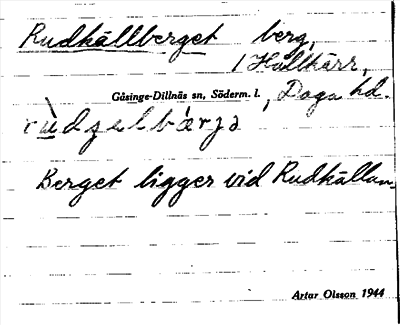 Rudkällberget berg,
/ Hällkärr,
Gåsinge-Dillnäs sn, Söderm. l. , Daga hd.
Berget ligger vid Rudkällan.
Artur Olsson 1944